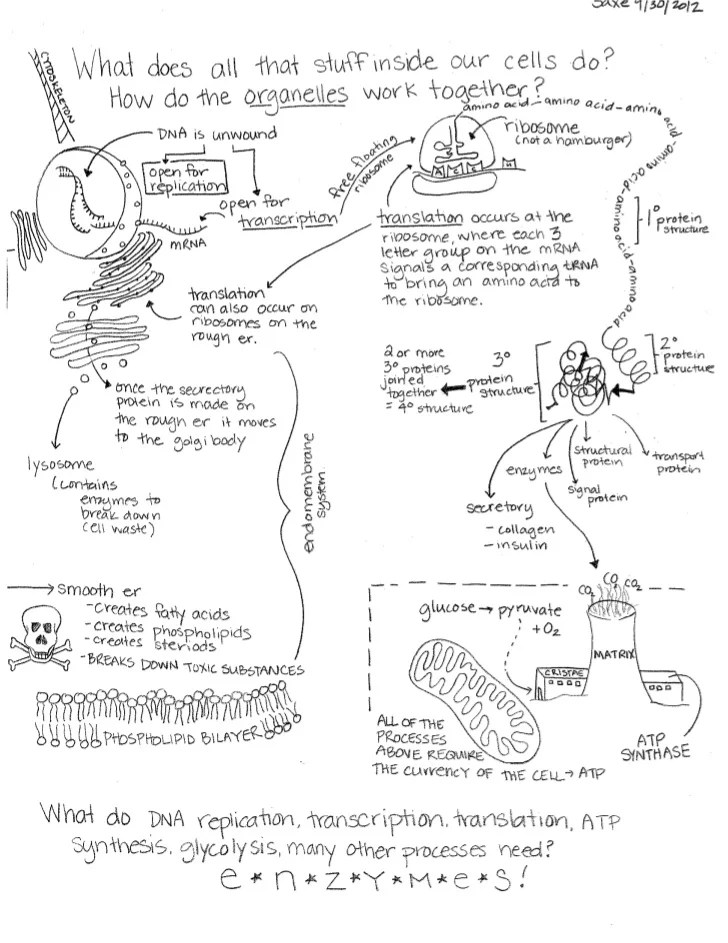 Saxe 9/30/2012
What does all that stuff inside our cells do?
How do the organelles work together?
CYTOSKELETON
DNA is unwound
open for
replication
open for
transcription
mRNA
free floating
ribosome
amino acid-amino acid-amino acid-amino acid-amino acid-amino acid
ribosome
(not a hamburger)
translation occurs at the
ribosome, where each 3
letter group on the mRNA
signals a corresponding tRNA
to bring an amino acid to
the ribosome.
1° protein
structure
translation
can also occur on
ribosomes on the
rough er.
2°
protein
structure
3°
protein
structure
2 or more
3° proteins
joined
together
= 4° structure
once the secrectory
protein is made on
the rough er it moves
to the golgi body
lysosome
(contains
enzymes to
break down
cell waste)
endomembrane
system
secretory
- collagen
- insulin
enzymes
signal
protein
structural
protein
transport
protein
smooth er
-creates fatty acids
-creates phospholipids
-creates steriods
-BREAKS DOWN TOXIC SUBSTANCES
PHOSPHOLIPID BILAYER
CO2 CO2 CO2
glucose → pyruvate
+O2
MATRIX
CRISTAE
ATP
SYNTHASE
ALL OF THE
PROCESSES
ABOVE REQUIRE
THE CURRENCY OF THE CELL → ATP
What do DNA replication, transcription, translation, ATP
synthesis, glycolysis, many other processes need?
e*n*z*Y*M*e*s!